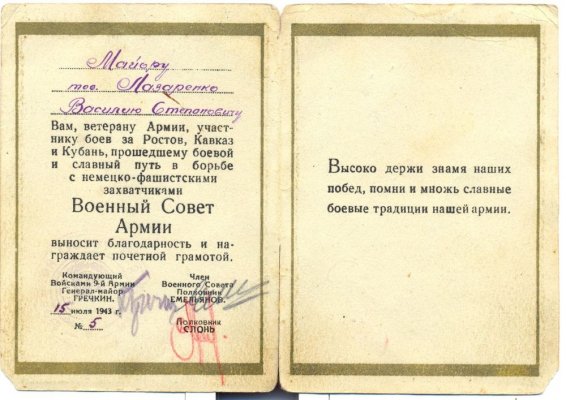 Майору
тов. Лазаренко
Василию Степановичу
Вам, ветерану Армии, участ-
нику боев за Ростов, Кавказ
и Кубань, прошедшему боевой
и славный путь в борьбе
с немецко-фашистскими
захватчиками
Военный Совет
Армии
выносит благодарность и на-
граждает почетной грамотой.
Командующий
Войсками 9-й Армии
Генерал-майор
ГРЕЧКИН.
Член
Военного Совета
Полковник
ЕМЕЛЬЯНОВ.
15 июля 1943 г.
№ 5
Полковник
СЛОНЬ
Высоко держи знамя наших
побед, помни и множь славные
боевые традиции нашей армии.